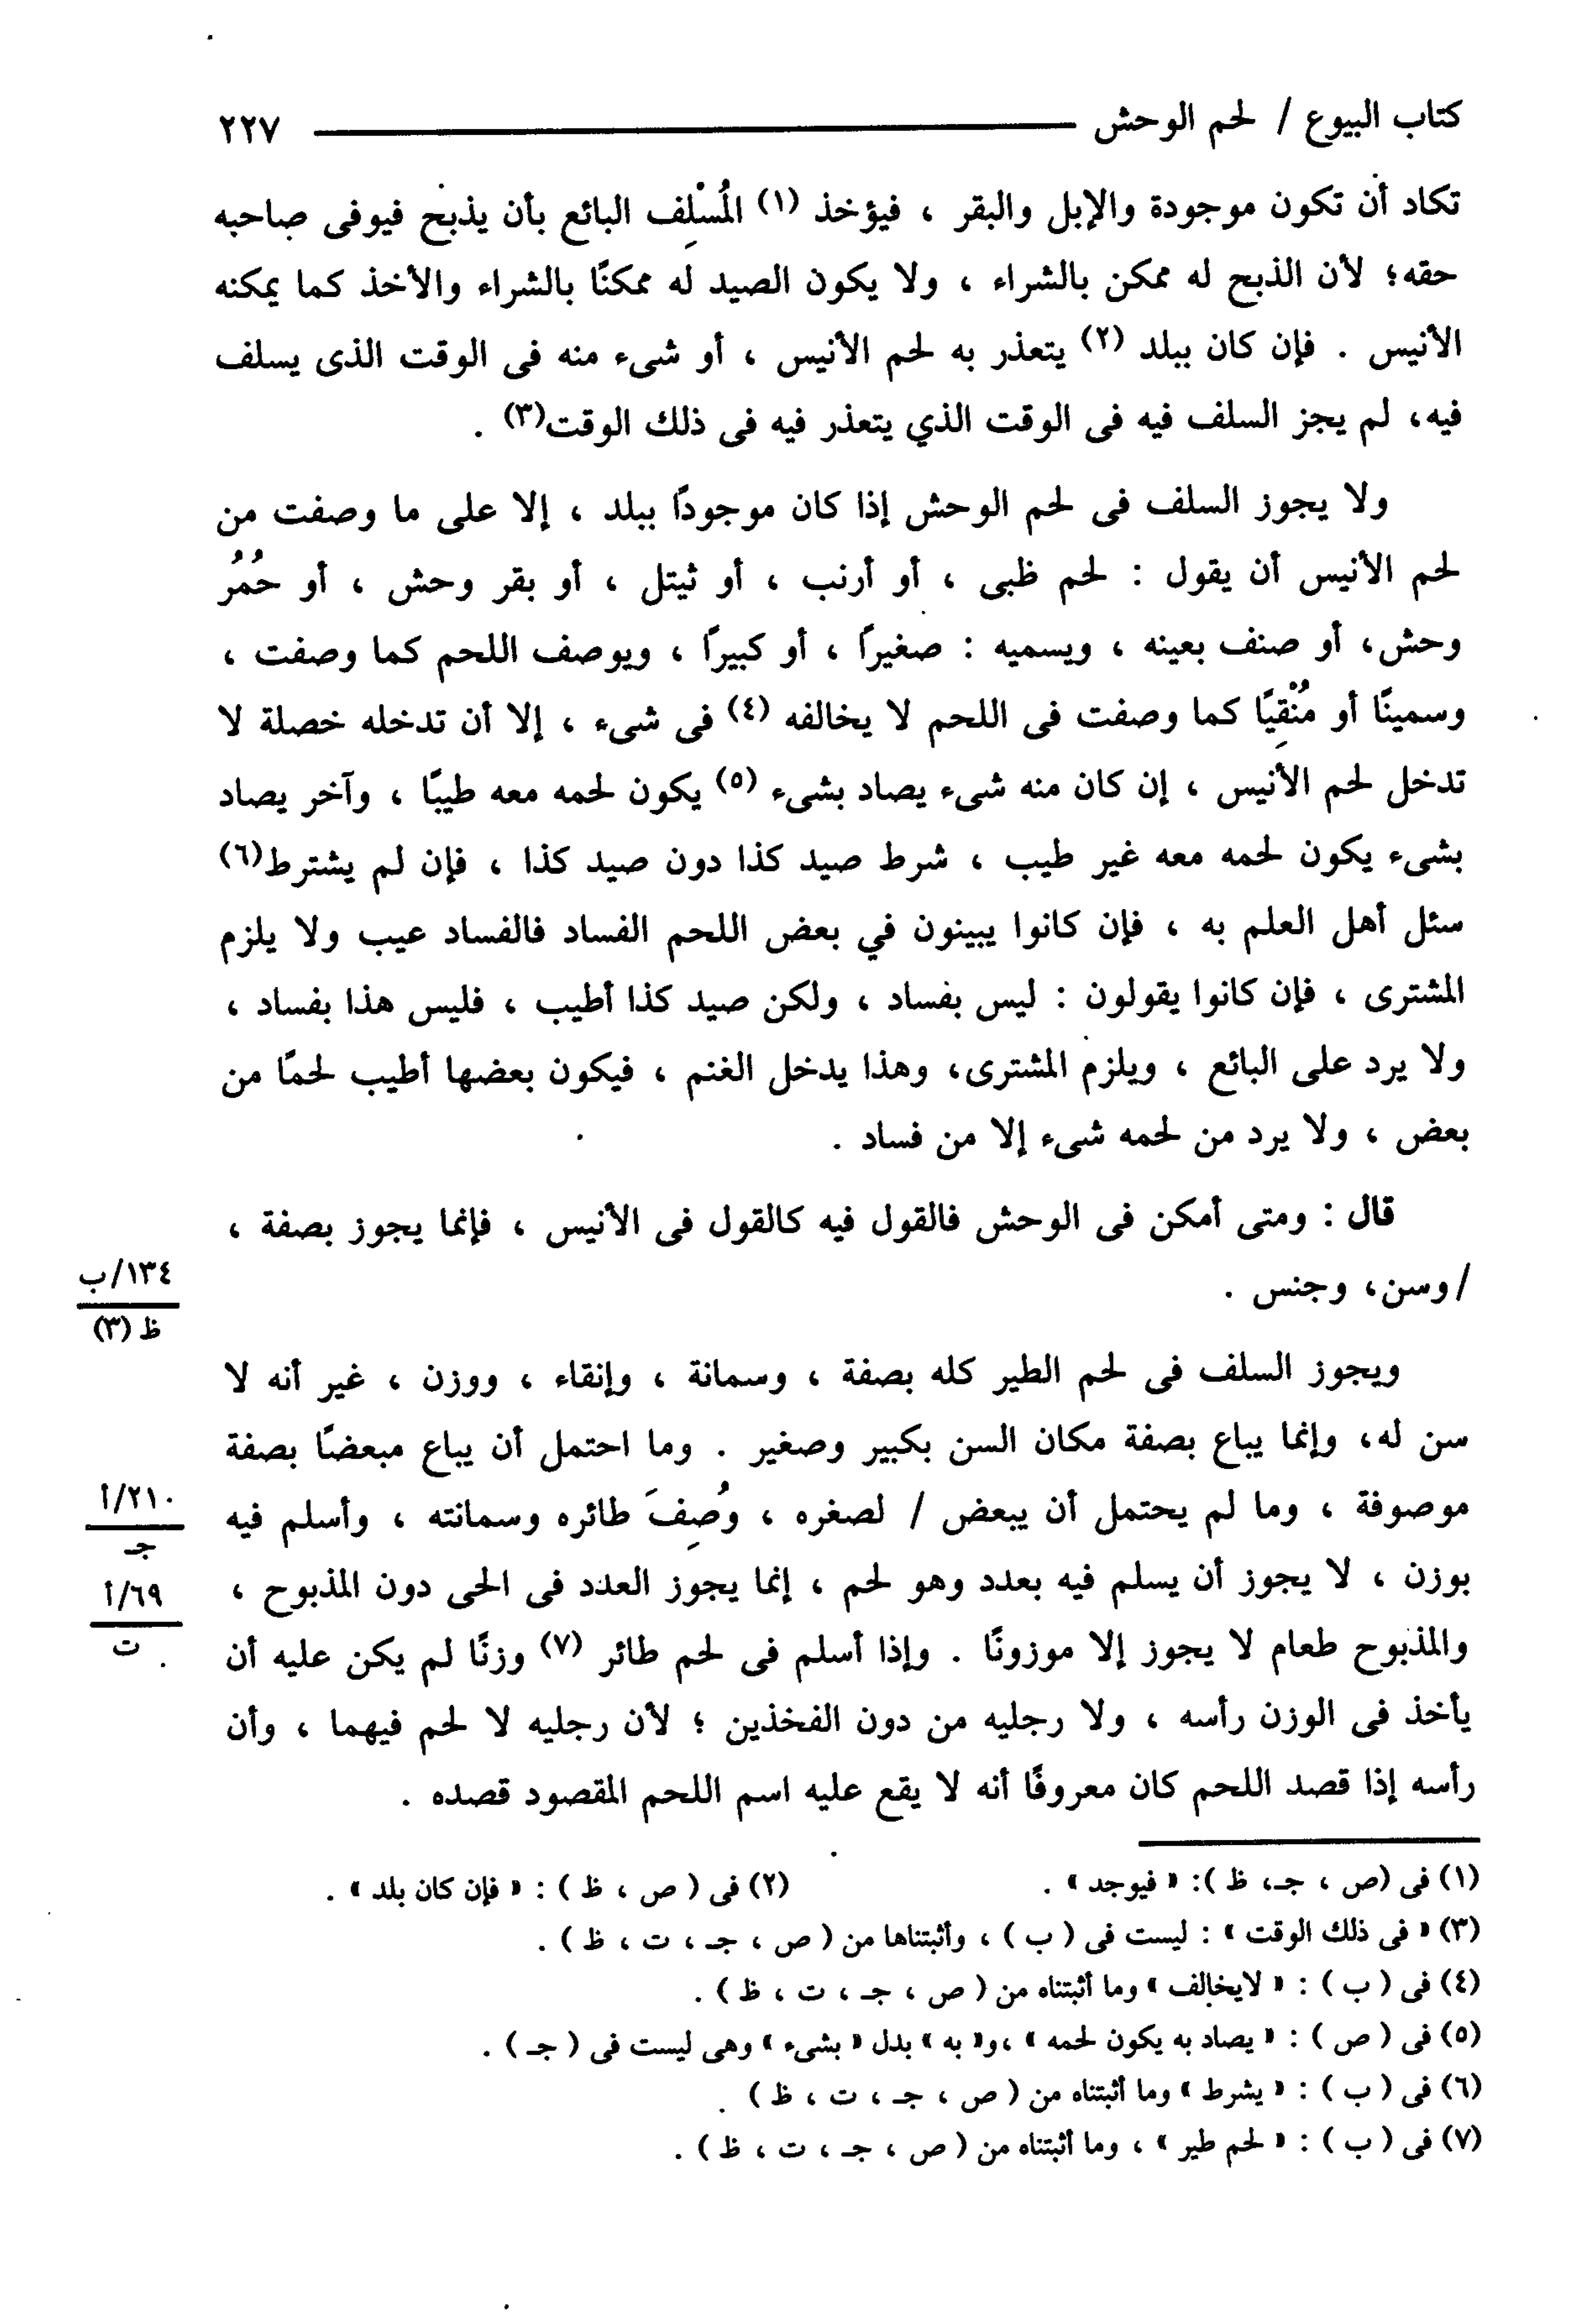 كتاب البيوع / لحم الوحش ٢٢٧
تكاد أن تكون موجودة والإبل والبقر ، فيؤخذ (١) المُسْلِف البائع بأن يذبح فيوفى صاحبه
حقه؛ لأن الذبح له ممكن بالشراء ، ولا يكون الصيد له ممكنًا بالشراء والأخذ كما يمكنه
الأنيس . فإن كان ببلد (٢) يتعذر به لحم الأنيس ، أو شىء منه فى الوقت الذى يسلف
فيه، لم يجز السلف فيه فى الوقت الذي يتعذر فيه فى ذلك الوقت(٣) .
ولا يجوز السلف فى لحم الوحش إذا كان موجودًا ببلد ، إلا على ما وصفت من
لحم الأنيس أن يقول : لحم ظبى ، أو أرنب ، أو ثيتل ، أو بقر وحش ، أو حُمُر
وحش، أو صنف بعينه ، ويسميه : صغيرًا ، أو كبيرًا ، ويوصف اللحم كما وصفت ،
وسمينًا أو مُنْقِيًا كما وصفت فى اللحم لا يخالفه (٤) فى شىء ، إلا أن تدخله خصلة لا
تدخل لحم الأنيس ، إن كان منه شىء يصاد بشىء (٥) يكون لحمه معه طيبًا ، وآخر يصاد
بشىء يكون لحمه معه غير طيب ، شرط صيد كذا دون صيد كذا ، فإن لم يشترط(٦)
سئل أهل العلم به ، فإن كانوا يبينون في بعض اللحم الفساد فالفساد عيب ولا يلزم
المشترى ، فإن كانوا يقولون : ليس بفساد ، ولكن صيد كذا أطيب ، فليس هذا بفساد ،
ولا يرد على البائع ، ويلزم المشترى، وهذا يدخل الغنم ، فيكون بعضها أطيب لحمًا من
بعض ، ولا يرد من لحمه شىء إلا من فساد .
قال : ومتى أمكن فى الوحش فالقول فيه كالقول فى الأنيس ، فإنما يجوز بصفة ،
١٣٤/ب
/وسن، وجنس .
ظ (٣)
ويجوز السلف فى لحم الطير كله بصفة ، وسمانة ، وإنقاء ، ووزن ، غير أنه لا
سن له، وإنما يباع بصفة مكان السن بكبير وصغير . وما احتمل أن يباع مبعضًا بصفة
٢١٠/أ
موصوفة ، وما لم يحتمل أن يبعض / لصغره ، وُصِفَ طائره وسمانته ، وأسلم فيه
جـ
بوزن ، لا يجوز أن يسلم فيه بعدد وهو لحم ، إنما يجوز العدد فى الحى دون المذبوح ،
٦٩/أ
والمذبوح طعام لا يجوز إلا موزونًا . وإذا أسلم فى لحم طائر (٧) وزنًا لم يكن عليه أن
ت
يأخذ فى الوزن رأسه ، ولا رجليه من دون الفخذين ؛ لأن رجليه لا لحم فيهما ، وأن
رأسه إذا قصد اللحم كان معروفًا أنه لا يقع عليه اسم اللحم المقصود قصده .
(١) فى (ص ، جـ، ظ ): « فيوجد» . (٢) فى ( ص ، ظ ) : « فإن كان بلد » .
(٣) « فى ذلك الوقت » : ليست فى ( ب ) ، وأثبتناها من ( ص ، جـ ، ت ، ظ ) .
(٤) فى ( ب ) : « لايخالف » وما أثبتناه من ( ص ، جـ ، ت ، ظ ) .
(٥) فى ( ص ) : « يصاد به يكون لحمه » ،و« به » بدل « بشىء » وهى ليست فى ( جـ ) .
(٦) فى ( ب ) : « يشرط » وما أثبتناه من ( ص ، جـ ، ت ، ظ ) .
(٧) فى ( ب ) : « لحم طير » ، وما أثبتناه من ( ص ، جـ ، ت ، ظ ) .